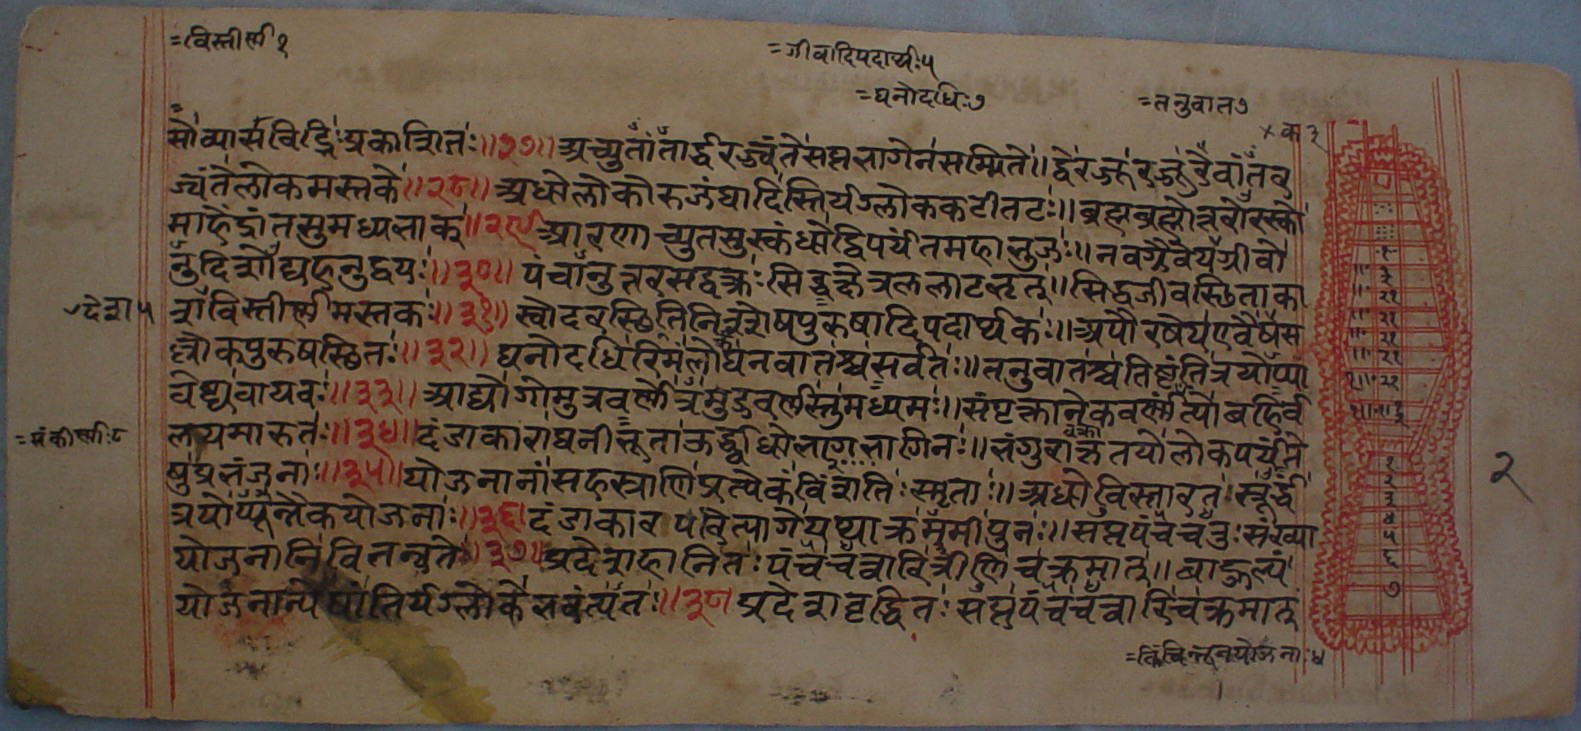 =विस्तीर्ण १
=जीवादिपदार्थः ५
=घनोदधिः ७
=तनुवात ७
सो व्यासविद्भिः प्रकाशितः॥२७॥ अच्युतांतार्द्धरज्ज्वंते सप्तभागेन सम्मिते॥ द्वे रज्जू रज्जुरेवांते र
ज्ज्वंते लोकमस्तके॥२८॥ अधोलोकोरुजंघादिस्तिर्यग्लोककटीतटः॥ ब्रह्मब्रह्मोत्तरोरस्को
माहेंद्रांतसुमध्यभाक्॥२९॥ आरणाच्युतसुस्कंधो द्विपर्यंतमहाभुजः॥ नवग्रैवेयग्रीवो
नुदिशोद्यहनुद्वयः॥३०॥ पंचानुत्तरसद्वक्त्रः सिद्धक्षेत्रललाटभृत्॥ सिद्धजीवस्थिताका
शविस्तीर्णमस्तकः॥३१॥ स्वोदरस्थितनिरशेषपुरुषादिपदार्थकः॥ अपौरषेय एवैष स
ल्लोकपुरुषस्थितः॥३२॥ घनोदधिरिमं लोघनवातश्च सर्वतः॥ तनुवातश्च तिष्ठंति त्रयोप्या
वेष्ट्य वायवः॥३३॥ आद्यो गोमुत्रवर्णोत्र मुद्गवर्णस्तु मध्यमः॥ संपृक्तानेकवर्णोंत्यो बहिर्व
लयमारुतः॥३४॥ दंडाकारा घनीभूता ऊर्द्ध्वाधोभागभागिनः॥ भंगुराकृतयो लोकपर्यंते
षु प्रभंजनाः॥३५॥ योजनानां सहस्त्राणि प्रत्येकं विंशतिः स्मृताः॥ अधो विस्तारतः स्तूर्द्ध्वं
त्रयोप्यूनैकयोजनाः॥३६॥ दंडाकारपरित्यागे यथाक्रममी पुनः॥ सप्तपंचचतुःसंख्या
योजनानि वितन्वते॥३७॥ प्रदेशहानितः पंच चत्वारि त्रीणि च क्रमात्॥ बाहुल्यं
योजनान्येषां तिर्यग्लोके भवंत्यतः॥३८॥ प्रदेशवृद्धितः सप्त पंच चत्वारि च क्रमात्
२